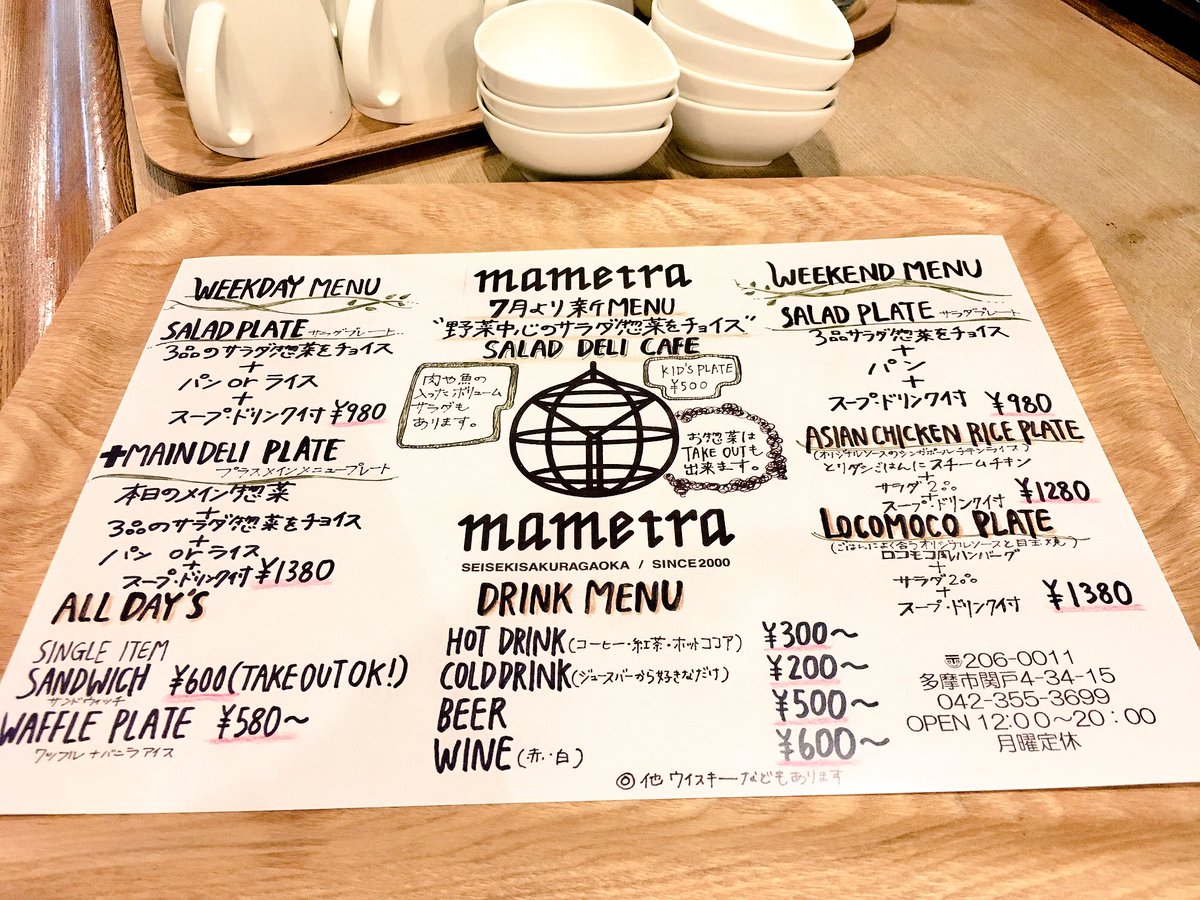 WEEKDAY MENU
SALAD PLATE サラダプレート
3品のサラダ惣菜をチョイス
+
パン or ライス
+
スープ・ドリンク付 ¥980
+MAIN DELI PLATE
プラスメインメニュープレート
本日のメイン惣菜
+
3品のサラダ惣菜をチョイス
+
パン or ライス
+
スープ・ドリンク付 ¥1380
ALL DAY'S
SINGLE ITEM
SANDWICH ¥600(TAKE OUT OK!)
サンドウィッチ
WAFFLE PLATE ¥580〜
ワッフル+バニラアイス
mametra
7月より新MENU
"野菜中心のサラダ惣菜をチョイス"
SALAD DELI CAFE
肉や魚の
入ったボリューム
サラダも
あります。
KID'S PLATE
¥500
お惣菜は
TAKE OUTも
出来ます。
mametra
SEISEKISAKURAGAOKA / SINCE2000
DRINK MENU
HOT DRINK(コーヒー・紅茶・ホットココア) ¥300〜
COLD DRINK(ジュースバーから好きなだけ) ¥200〜
BEER ¥500〜
WINE(赤・白) ¥600〜
◎他 ウイスキーなどもあります
WEEKEND MENU
SALAD PLATE サラダプレート
3品サラダ惣菜をチョイス
+
パン
+
スープ・ドリンク付 ¥980
ASIAN CHICKEN RICE PLATE
(オリジナルソースのシンガポールチキンライス)
とリダシごはんにスチームチキン
+
サラダ2品
+
スープ・ドリンク付 ¥1280
LOCOMOCO PLATE
(ごはんによく合うオリジナルソースと目玉焼)
ロコモコ風ハンバーグ
+
サラダ2品
+
スープ・ドリンク付 ¥1380
〠206-0011
多摩市関戸4-34-15
042-355-3699
OPEN 12:00〜20:00
月曜定休